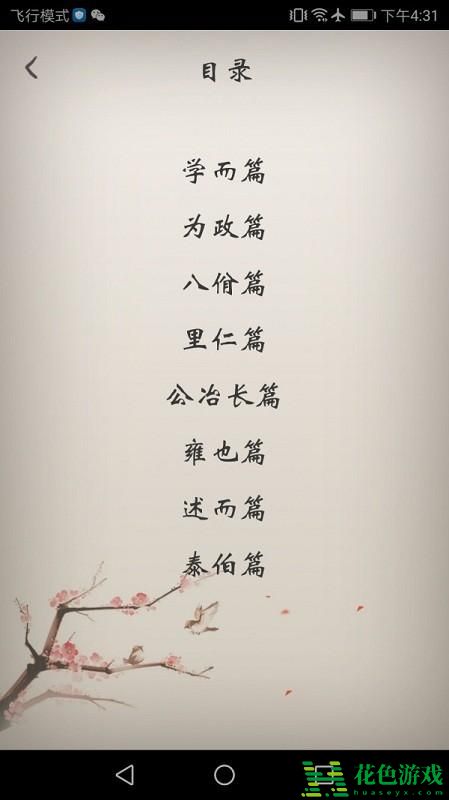 飞行模式 下午4:31
目录
学而篇
为政篇
八佾篇
里仁篇
公冶长篇
雍也篇
述而篇
泰伯篇
花色游戏
huaseyx.com